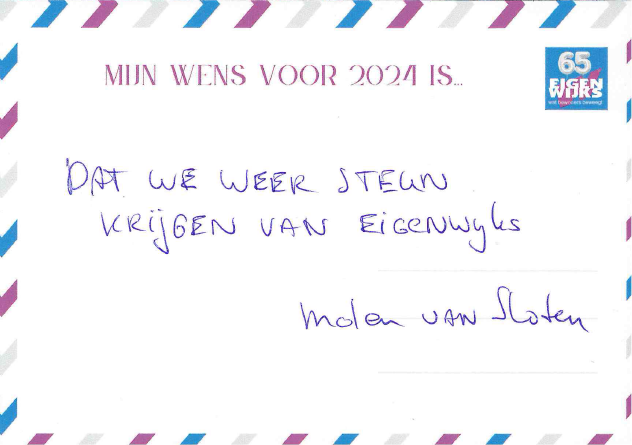 MIJN WENS VOOR 2024 IS...
65
EIGEN
WIJKS
wat bewoners beweegt
DAT WE WEER STEUN
KRIJGEN VAN EIGENWYKS
Molen VAN Sloten